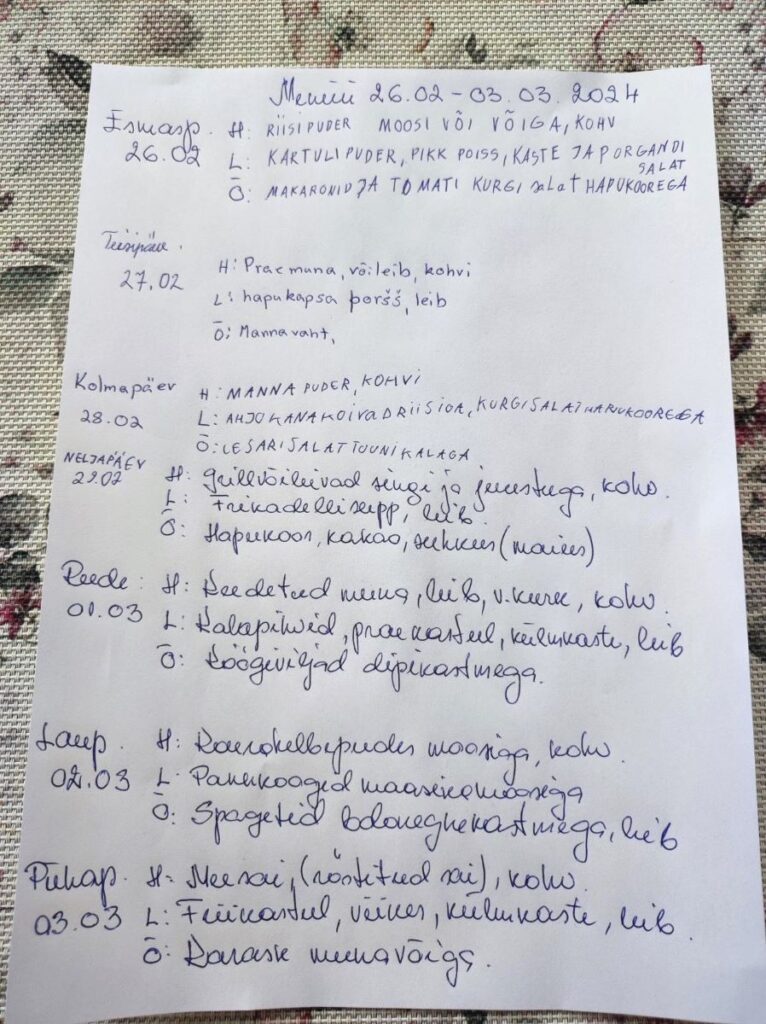 Menüü 26.02 - 03.03.2024
Esmasp. H: RIISIPUDER MOOSI VÕI VÕIGA, KOHV
26.02 L: KARTULIPUDER, PIKK POISS, KASTE JA PORGANDI
SALAT
Õ: MAKARONID JA TOMATI KURGI salat HAPUKOOREGA
Teisipäev.
27.02 H: Praemuna, võileib, kohvi
L: hapukapsa poršš, leib
Õ: Mannavaht,
Kolmapäev H: MANNAPUDER, KOHVI
28.02 L: AHJUKANAKOIVAD RIISIGA, KURGISALAT HAPUKOOREGA
Õ: CESARI SALAT TUUNIKALAGA
NELJAPÄEV H: Grillvõileivad singi ja juustuga, kohv.
29.02 L: Frikadellisupp, leib.
Õ: Hapukoor, kakao, suhkur (maius)
Reede: H: Keedetud muna, leib, v. kurk, kohv.
01.03 L: Kalapihvid, praekartul, külmkaste, leib
Õ: Köögiviljad dipikastmega.
Laup. H: Kaerahelbepuder moosiga, kohv.
02.03 L: Pannkoogid maasikamoosiga
Õ: Spagetid bolognekastmega, leib
Pühap. H: Meesai, (röstitud sai), kohv.
03.03 L: Friikartul, viiner, külmkaste, leib.
Õ: Karask munavõiga.